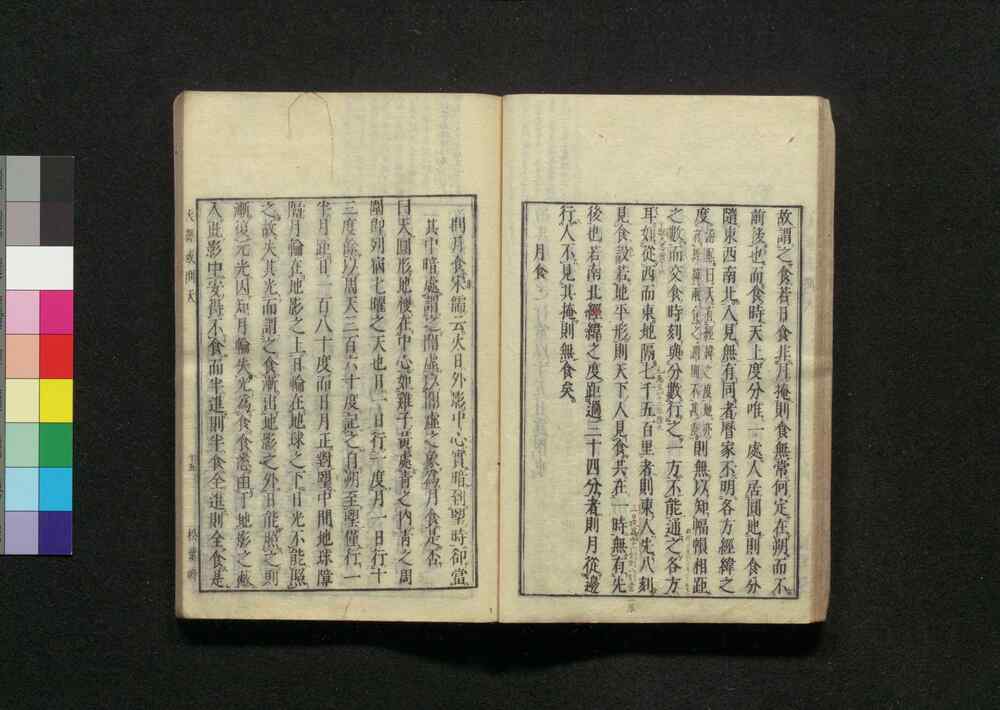 故謂之食若日食非月掩則食無常何定在朔而不
前後也而食時天上度分唯一處人居圓地則食分
隨東西南北人見無有同者曆家不明各方經緯之
度則無以知幅幀相距
之數而交食時刻與分數行之一方不能通之各方
耳如從西而東地隔七千五百里者則東人先八刻
見食設若地平形則天下人見食共在一時無有先
後也若南北經緯之度距過三十四分者則月從邊
行人不見其掩則無食矣
月食
問月食宋儒云火日外影中心實暗到望時卻當
其中暗處謂之闇虛以闇虛之象為月食是否
曰天圓形地梗在中心如雞子黃處青之內青之周
圍即列宿七曜之天也日一日行一度月一日行十
三度餘以周天三百六十度記之自朔至望僅行一
半月距日一百八十度而日月正對望中間地球障
隔月輪在地影之上日輪在地球之下日光不能照
之故失其光而謂之食漸出地影之外日能照之則
漸復元光因知月輪失光為食食悉由于地影之蔽
入此影中安得不食而半進則半食全進則全食是
天經或問天
松葉軒